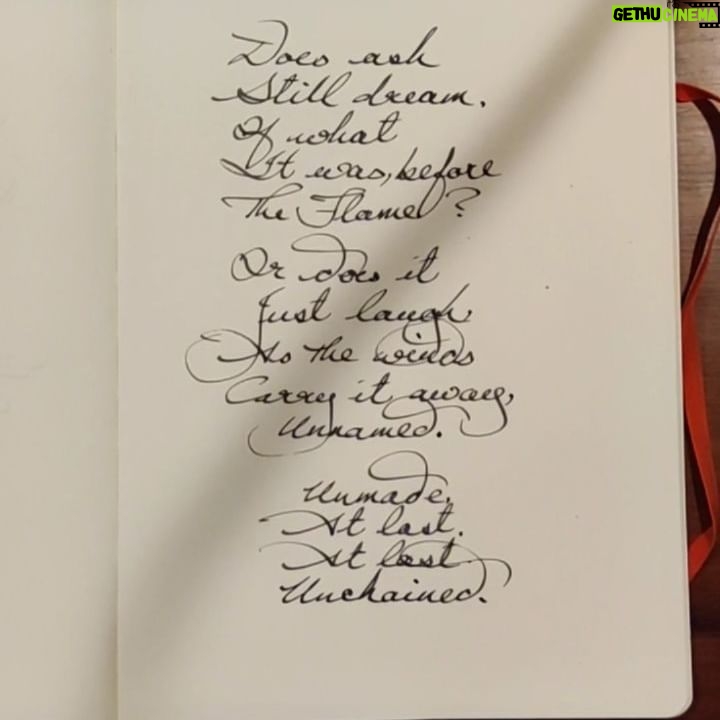 GETHU CINEMA
Does ash
Still dream.
Of what
It was, before
The Flame?
Or does it
Just laugh,
As the winds
Carry it away,
Unnamed.
Unmade.
At last.
At last
Unchained.